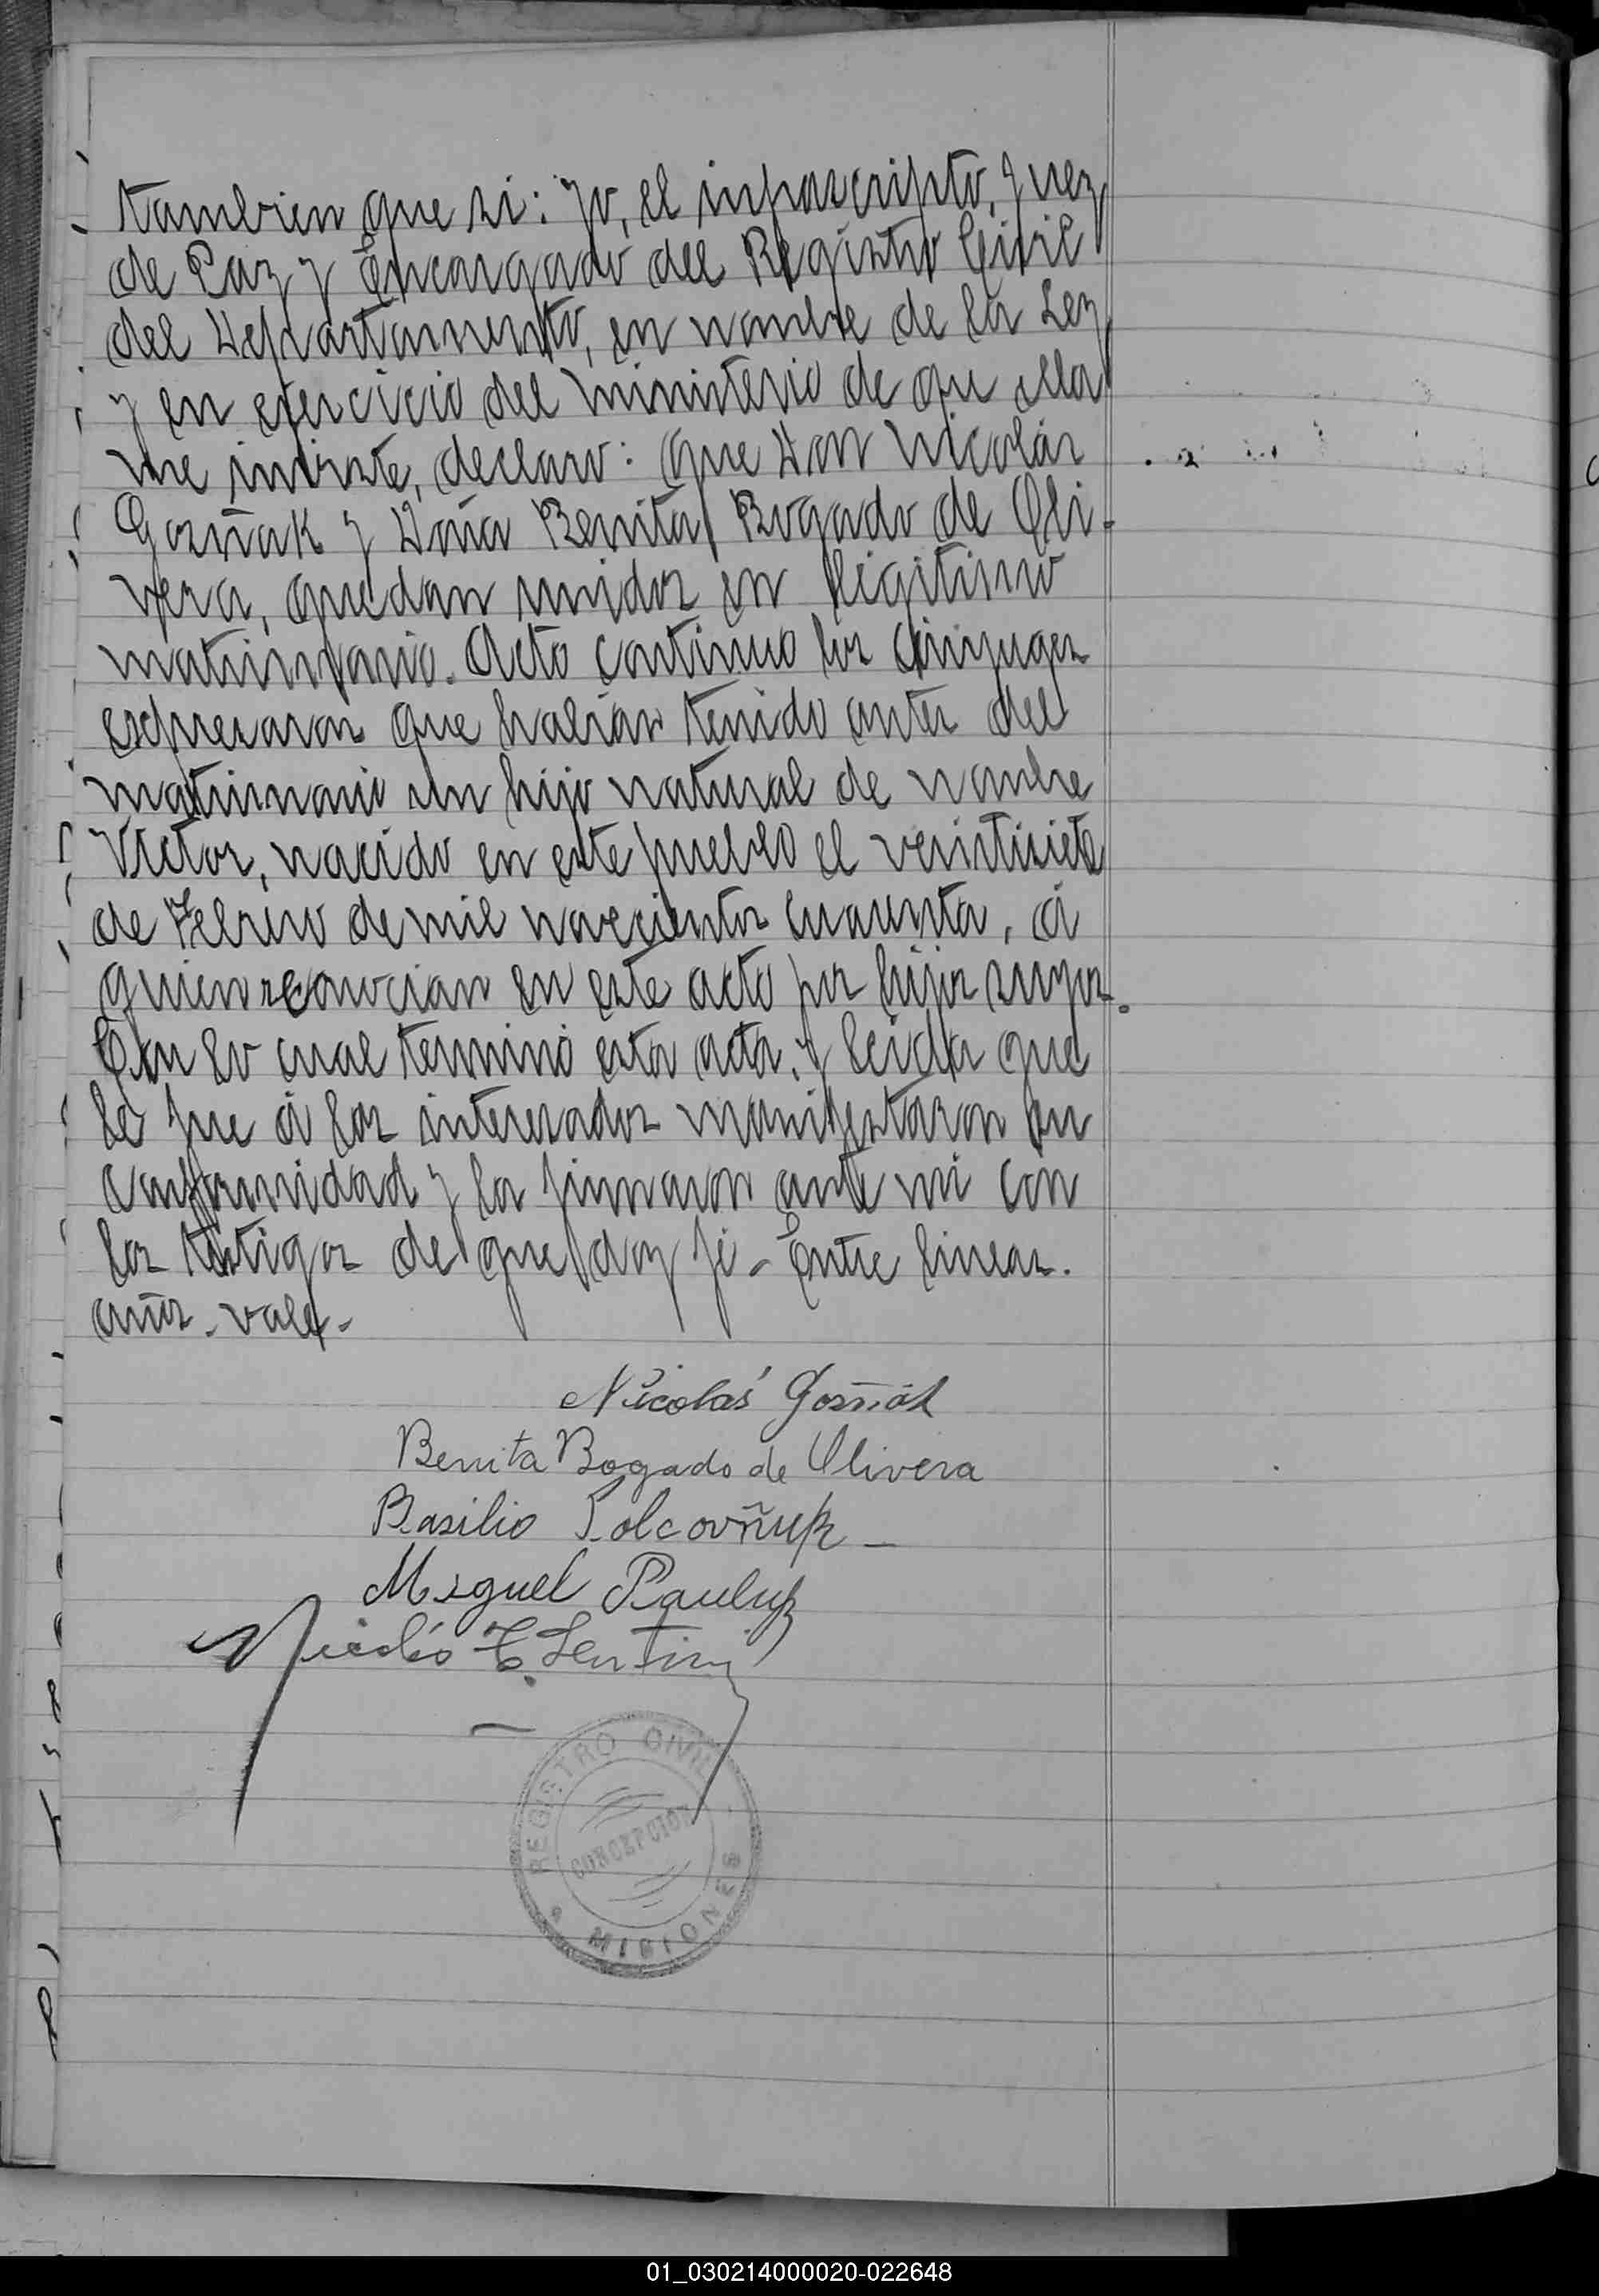 tambien que si: Yo, el infrascripto, Juez
de Paz y Encargado del Registro Civil
del Departamento, en nombre de la Ley
y en ejercicio del ministerio de que ella
me inviste, declaro: Que Don Nicolás
Gozñak y Doña Benita Bogado de Oli-
vera, quedan unidos en legitimo
matrimonio. Acto continuo los cónyuges
expresaron que habian tenido antes del
matrimonio un hijo natural de nombre
Victor, nacido en este pueblo el veintisiete
de Febrero de mil novecientos cuarenta, á
quien reconocian en este acto por hijos suyos.
Con lo cual terminó esta acta, y leida que
le fue á los interesados manifestaron su
conformidad y la firmaron ante mi con
los testigos de que doy fé - Entre lineas.
años - vale -
Nicolás Gozñak
Benita Bogado de Olivera
Basilio
Miguel Pauluk
Nicolás
REGISTRO CIVIL
CONCEPCION
MISIONES
01_030214000020-022648